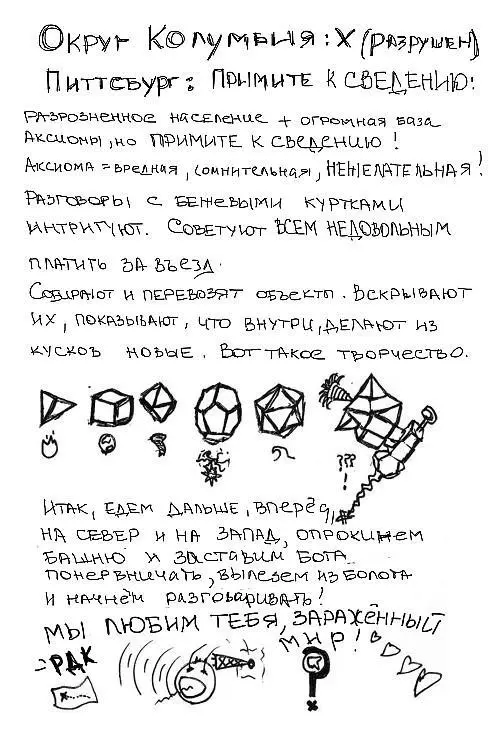 Округ Колумбия: X (разрушен)
Питтсбург: Примите к сведению:
Разрозненное население + огромная база
Аксиомы, но примите к сведению!
Аксиома = вредная, сомнительная, нежелательная!
Разговоры с бежевыми куртками
интригуют. Советуют всем недовольным
платить за въезд.
Собирают и перевозят объекты. Вскрывают
их, показывают, что внутри, делают из
кусков новые. Вот такое творчество.
???
Итак, едем дальше, вперёд,
на север и на запад, опрокинем
башню и заставим бота
понервничать, вылезем из болота
и начнём разговаривать!
Мы любим тебя, заражённый
мир!
=РДК